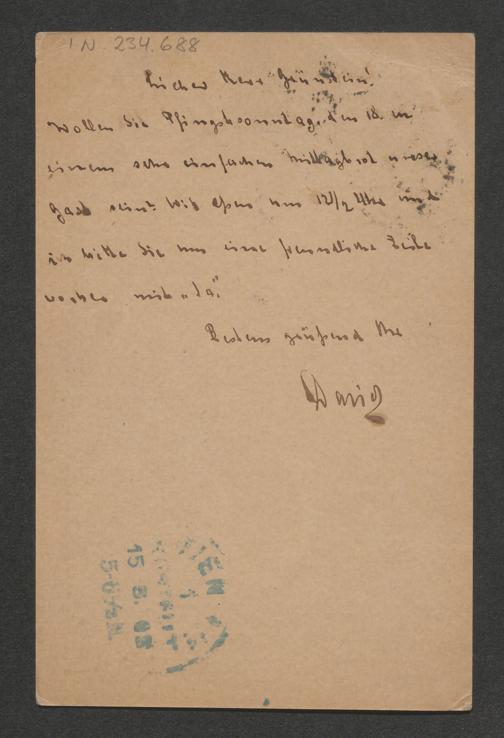 I N. 234.688
Lieber Herr Grünstein!
Wollen Sie Pfingstsonntag, den 18. in
einem sehr einfachen Mittagbrot unser
Gast sein? Wir essen um 12 1/2 Uhr und
ich bitte Sie um eine freundliche Zeile
vorher mit „Ja".
Bestens grüßend Ihr
David
WIEN
1
15. 5.
5-6